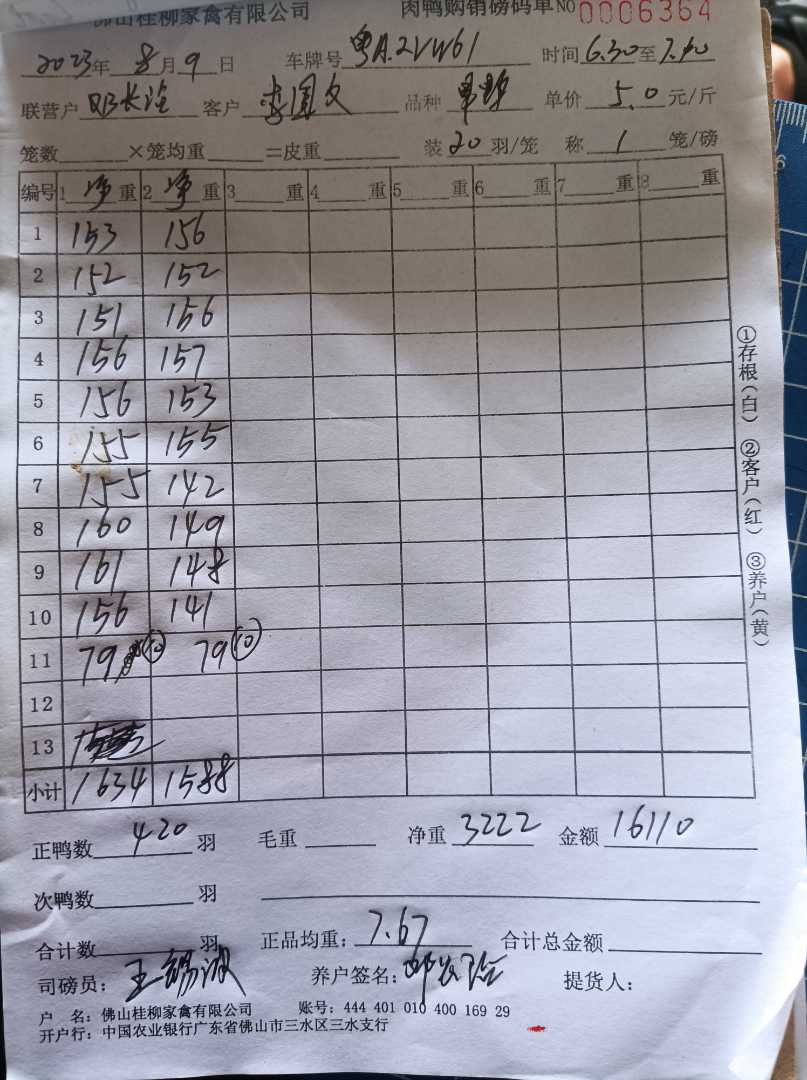 佛山桂柳家禽有限公司 肉鸭购销磅码单 NO 0006364
2023年 8月 9日 车牌号 粤A.2VW61 时间 6.30至7.40
联营户 邓长 客户 李国文 品种 单价 5.0 元/斤
笼数 ×笼均重 =皮重 装 20 羽/笼 称 1 笼/磅
编号 1 净 重 2 净 重 3 重 4 重 5 重 6 重 7 重 8 重
1 153 156
2 152 152
3 151 156
4 156 157
5 156 153
6 155 155
7 155 142
8 160 149
9 161 148
10 156 141
11 79 (10) 79 (10)
12
13
小计 1634 1588
正鸭数 420 羽 毛重 净重 3222 金额 16110
次鸭数 羽
合计数 羽 正品均重: 7.67 合计总金额
司磅员: 王锡 养户签名: 邓长 提货人:
户 名: 佛山桂柳家禽有限公司 账号: 444 401 010 400 169 29
开户行: 中国农业银行广东省佛山市三水区三水支行
①存根(白) ②客户(红) ③养户(黄)
6